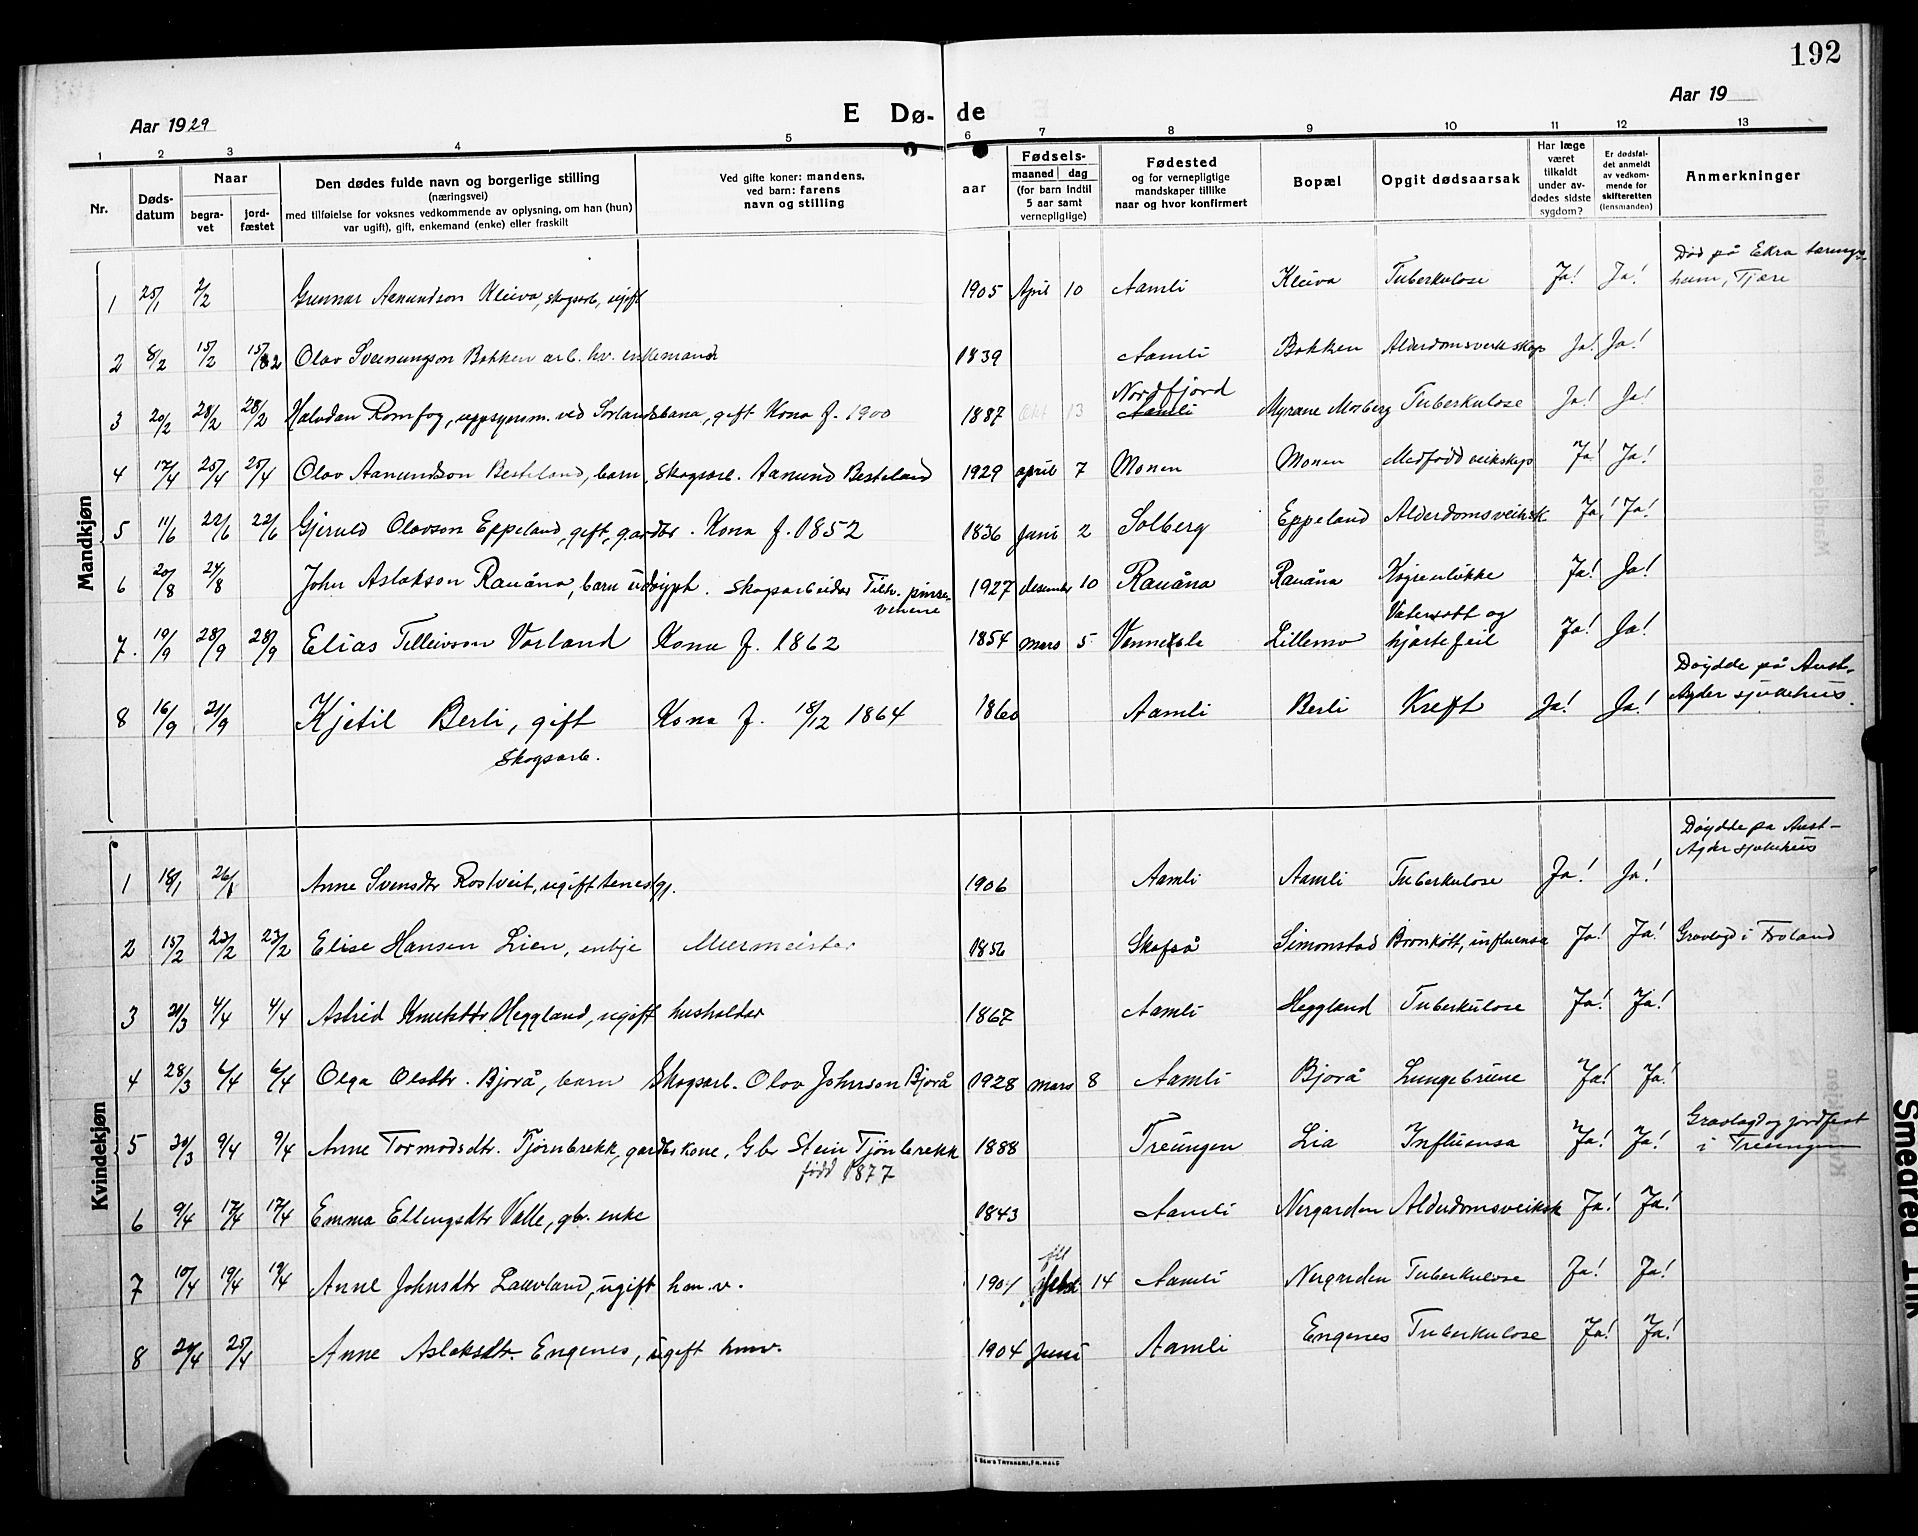 192
Aar 1929
E Dø-de
Aar 19
1 2 3 4 5 6 7 8 9 10 11 12 13
Nr.
Døds-
datum
Naar
begra-
vet
jord-
fæstet
Den dødes fulde navn og borgerlige stilling
(næringsvei)
med tilføielse for voksnes vedkommende av oplysning, om han (hun)
var ugift), gift, enkemand (enke) eller fraskilt
Ved gifte koner: mandens,
ved barn: farens
navn og stilling
aar
Fødsels-
maaned dag
(for barn indtil
5 aar samt
vernepligtige)
Fødested
og for vernepligtige
mandskaper tillike
naar og hvor konfirmert
Bopæl
Opgit dødsaarsak
Har læge
været
tilkaldt
under av-
dødes sidste
sygdom?
Er dødsfal-
det anmeldt
av vedkom-
mende for
skifteretten
(lensmanden)
Anmerkninger
Mandkjøn
1 25/1 2/2 Gunnar Aanundson Kleiva, skogsarb, ugift 1905 April 10 Aamli Kleiva Tuberkulose Ja! Ja! Død på Ekra tærings-
heim, Tjøre
2 8/2 15/2 15/2 Olav Sveinungson Bakken arb. hv. enkemand 1839 Aamli Bakken Alderdomsveikskap Ja! Ja!
3 20/2 28/2 28/2 Halvdan Romfog, uppsynsm. ved Sørlandsbana, gift Kona f. 1900 1887 Okt 13 Nordfjord
Aamli Myrane Mosberg Tuberkulose Ja! Ja!
4 17/4 25/4 25/4 Olav Aanundson Besteland, barn, Skogsarb. Aanund Besteland 1929 april 7 Monen Monen Medfødd veikskap Ja! Ja!
5 11/6 22/6 22/6 Gjeruld Olavson Eppeland, gift, gardbr. Kona f. 1852 1836 Juni 2 Solberg Eppeland Alderdomsveiksk Ja! Ja!
6 20/8 24/8 John Aslakson Rauåna, barn udøypt. Skogsarbeider Tilh. pinse-
venene 1927 desember 10 Rauåna Rauåna Ja! Ja!
7. 19/9 28/9 28/9 Elias Telleivson Vorland Kona f. 1862 1854 mars 5 Vennesla Lillemo Vatersott og
hjartefeil Ja! Ja!
8 16/9 21/9 Kjetil Berli, gift
Skogsarb. Kona f. 18/12 1864 1860 Aamli Berli Kreft Ja! Ja! Døydde på Aust-
Agder sjukehus.
Kvindekjøn
1 18/1 26/1 Anne Svensdtr Rostveit, ugift tenestgj. 1906 Aamli Aamli Tuberkulose Ja! Ja! Døydde på Aust-
Agder sjukehus
2 15/2 23/2 23/2 Elise Hansen Lien, enkje Murmeister 1856 Skafså Simonstad Bronkitt, influensa Ja! Ja! Gravlagd i Froland
3 21/3 4/4 4/4 Astrid Knutsdtr Heggland, ugift husholder 1867 Aamli Heggland Tuberkulose Ja! Ja!
4 28/3 6/4 6/4 Olga Olsdtr. Bjorå, barn Skogsarb. Olav Johnson Bjorå 1928 mars 8 Aamli Bjorå Lungebrune Ja! Ja!
5 30/3 9/4 9/4 Anne Tormodsdtr. Tjørnbrekk, gardbr kone, Gbr Stein Tjönbrekk
född 1877 1888 Treungen Lia Influensa Ja! Ja! Gravlagd og jordfest
i Treungen
6 9/4 17/4 17/4 Emma Ellingsdtr Valle, gbr. enke 1843 Aamli Nergarden Alderdomsveiksk Ja! Ja!
7 10/4 19/4 19/4 Anne Johnsdtr Lauvland, ugift hm.v. 1901 14 Aamli Nergarden Tuberkulose Ja! Ja!
8 20/4 25/4 Anne Aslaksdtr. Engenes, ugift hmv. 1904 Juni Aamli Engenes Tuberkulose Ja! Ja!